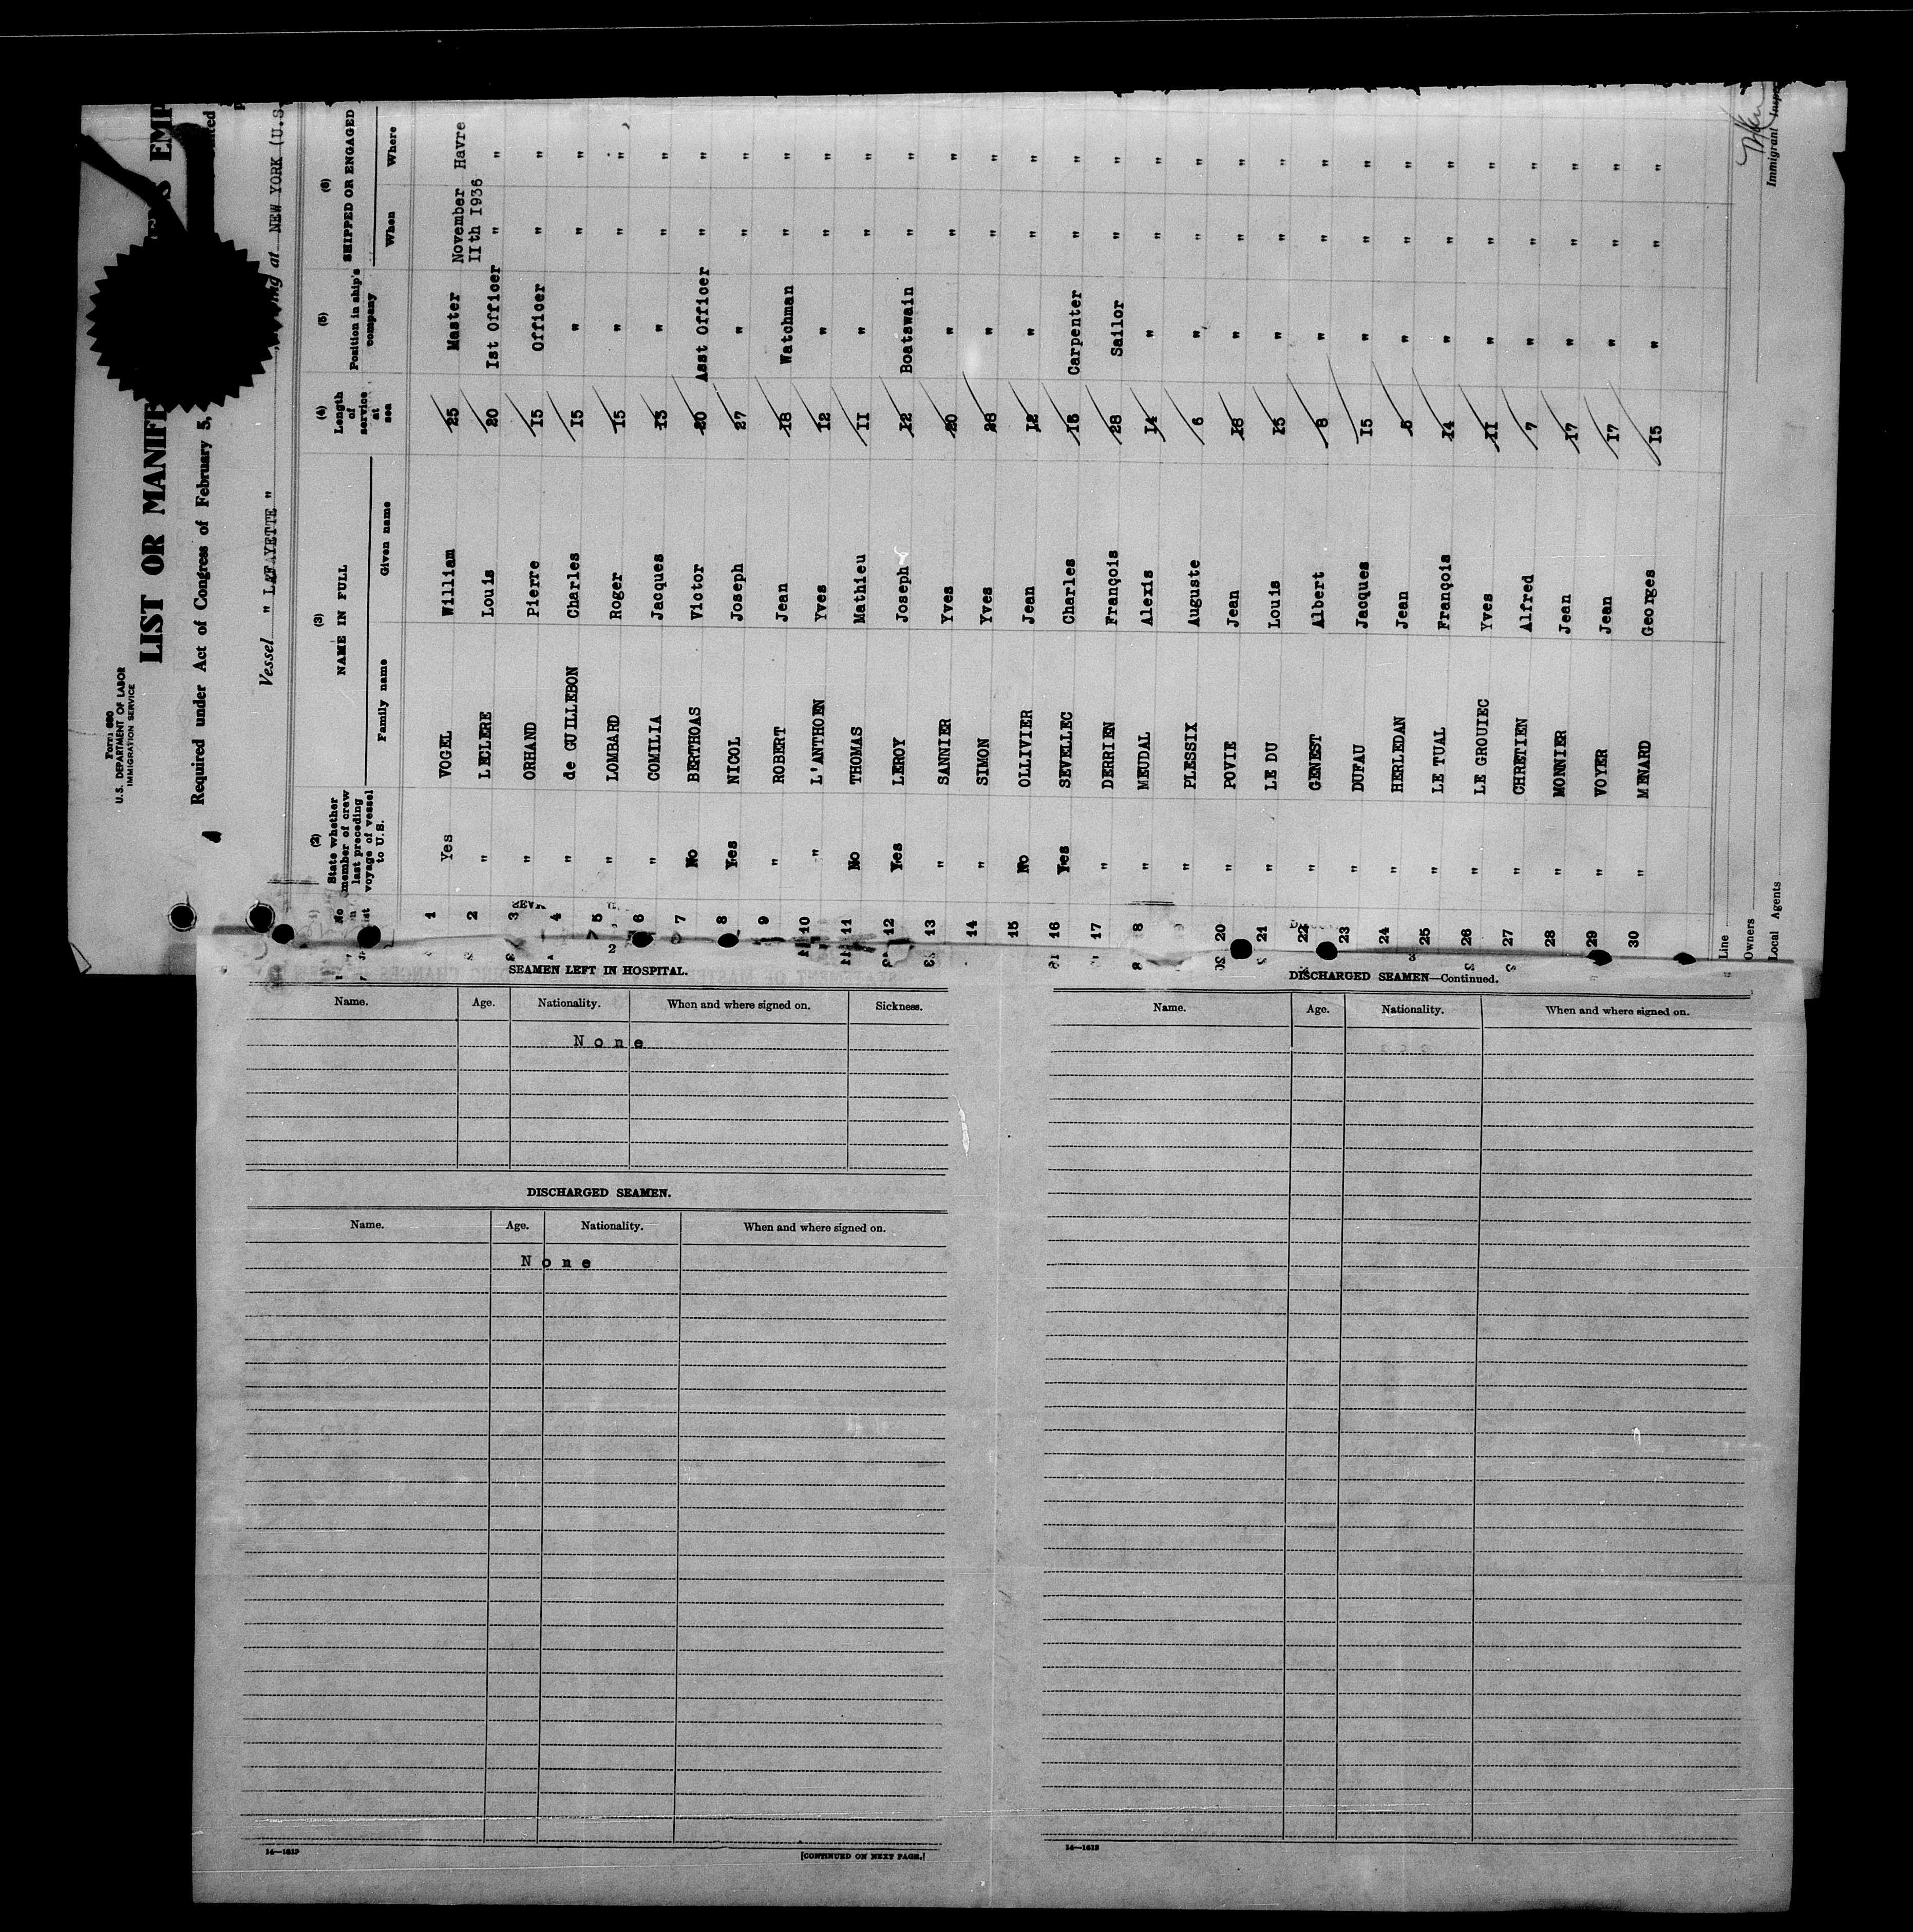 Form 680
U.S. DEPARTMENT OF LABOR
IMMIGRATION SERVICE
LIST OR MANIFE
EMP
Required under Act of Congress of February 5,
Vessel " LAFAYETTE " at NEW YORK (U.S
(2) (3) (4) (5) (6)
State whether member of crew last preceding voyage of vessel to U.S. NAME IN FULL Length of service at sea Position in ship's company SHIPPED OR ENGAGED
Family name Given name When Where
1 Yes VOGEL William 25 Master November IIth 1936 Havre
2 " LECLERE Louis 20 Ist Officer " "
3 " ORHAND Pierre I5 Officer " "
4 " de GUILLEBON Charles I5 " " "
5 " LOMBARD Roger I5 " " "
6 " COMILIA Jacques I3 " " "
7 No BERTHOAS Victor 20 Asst Officer " "
8 Yes NICOL Joseph 27 " " "
9 " ROBERT Jean I8 Watchman " "
10 " L'ANTHOEN Yves I2 " " "
11 No THOMAS Mathieu II " " "
12 Yes LEROY Joseph I2 Boatswain " "
13 " SANNIER Yves 20 " " "
14 " SIMON Yves 28 " " "
15 No OLLIVIER Jean I2 " " "
16 Yes SEVELLEC Charles I5 Carpenter " "
17 " DERRIEN François 28 Sailor " "
8 " MEUDAL Alexis I4 " " "
" PLESSIX Auguste 6 " " "
20 " POVIE Jean I8 " " "
21 " LE DU Louis I5 " " "
22 " GENEST Albert 8 " " "
23 " DUFAU Jacques I5 " " "
24 " HERLEDAN Jean 5 " " "
25 " LE TUAL François I4 " " "
26 " LE GROUIEC Yves II " " "
27 " CHRETIEN Alfred 7 " " "
28 " MONNIER Jean I7 " " "
29 " VOYER Jean I7 " " "
30 " MENARD Georges I5 " " "
Line
Owners
Local Agents
Immigrant Inspec
SEAMEN LEFT IN HOSPITAL.
Name. Age. Nationality. When and where signed on. Sickness.
None
DISCHARGED SEAMEN.
Name. Age. Nationality. When and where signed on.
None
14—1612
[CONTINUED ON NEXT PAGE.]
DISCHARGED SEAMEN—Continued.
Name. Age. Nationality. When and where signed on.
14—1612